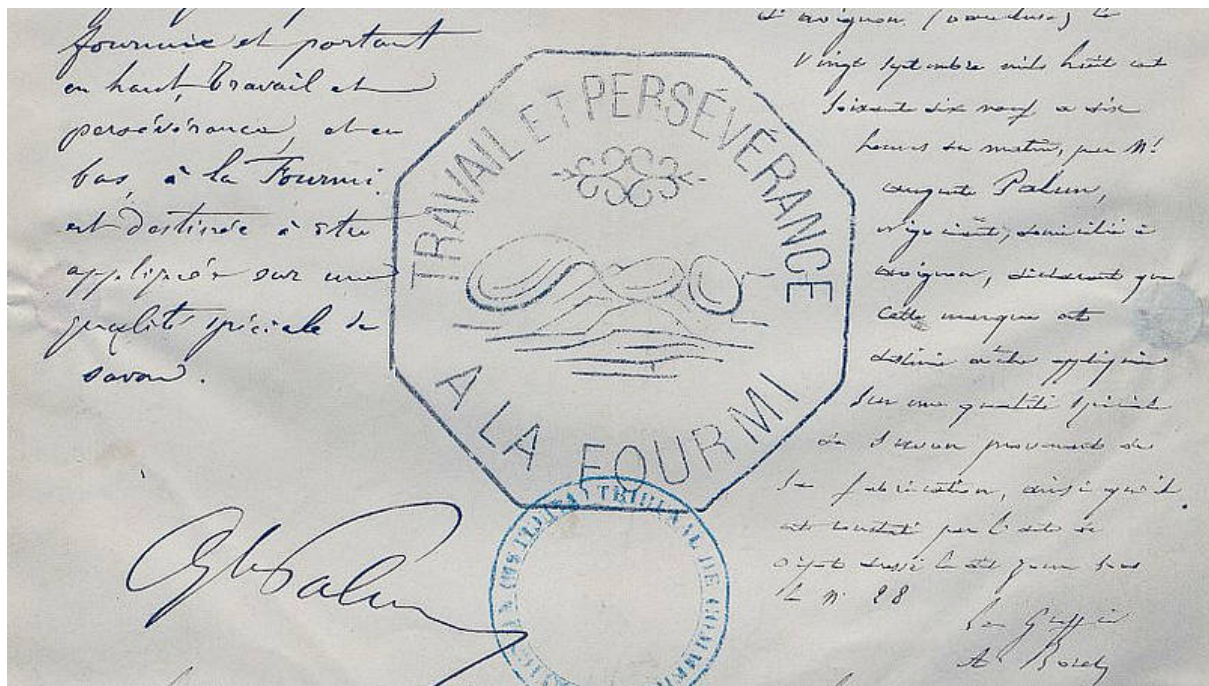 fourmie et portant
en haut, Travail et
persévérance, et en
bas, à la Fourmi.
est destinée à être
appliquée sur une
qualité spéciale de
savon.
TRAVAIL ET PERSÉVÉRANCE
A LA FOURMI
TRIBUNAL DE COMMERCE
d'avignon, (vaucluse) le
Vingt septembre mil huit cent
soixante dix neuf a dix
heures du matin, par Mr
auguste Palun,
négociant, domicilié à
avignon, déclarant que
Cette marque est
destinée a être appliquée
Sur une qualité spéciale
de Savon provenant de
Sa fabrication, ainsi qu'il
est constaté par l'acte de
dépôt dressé le dit jour sous
le n° 28
Le Greffier